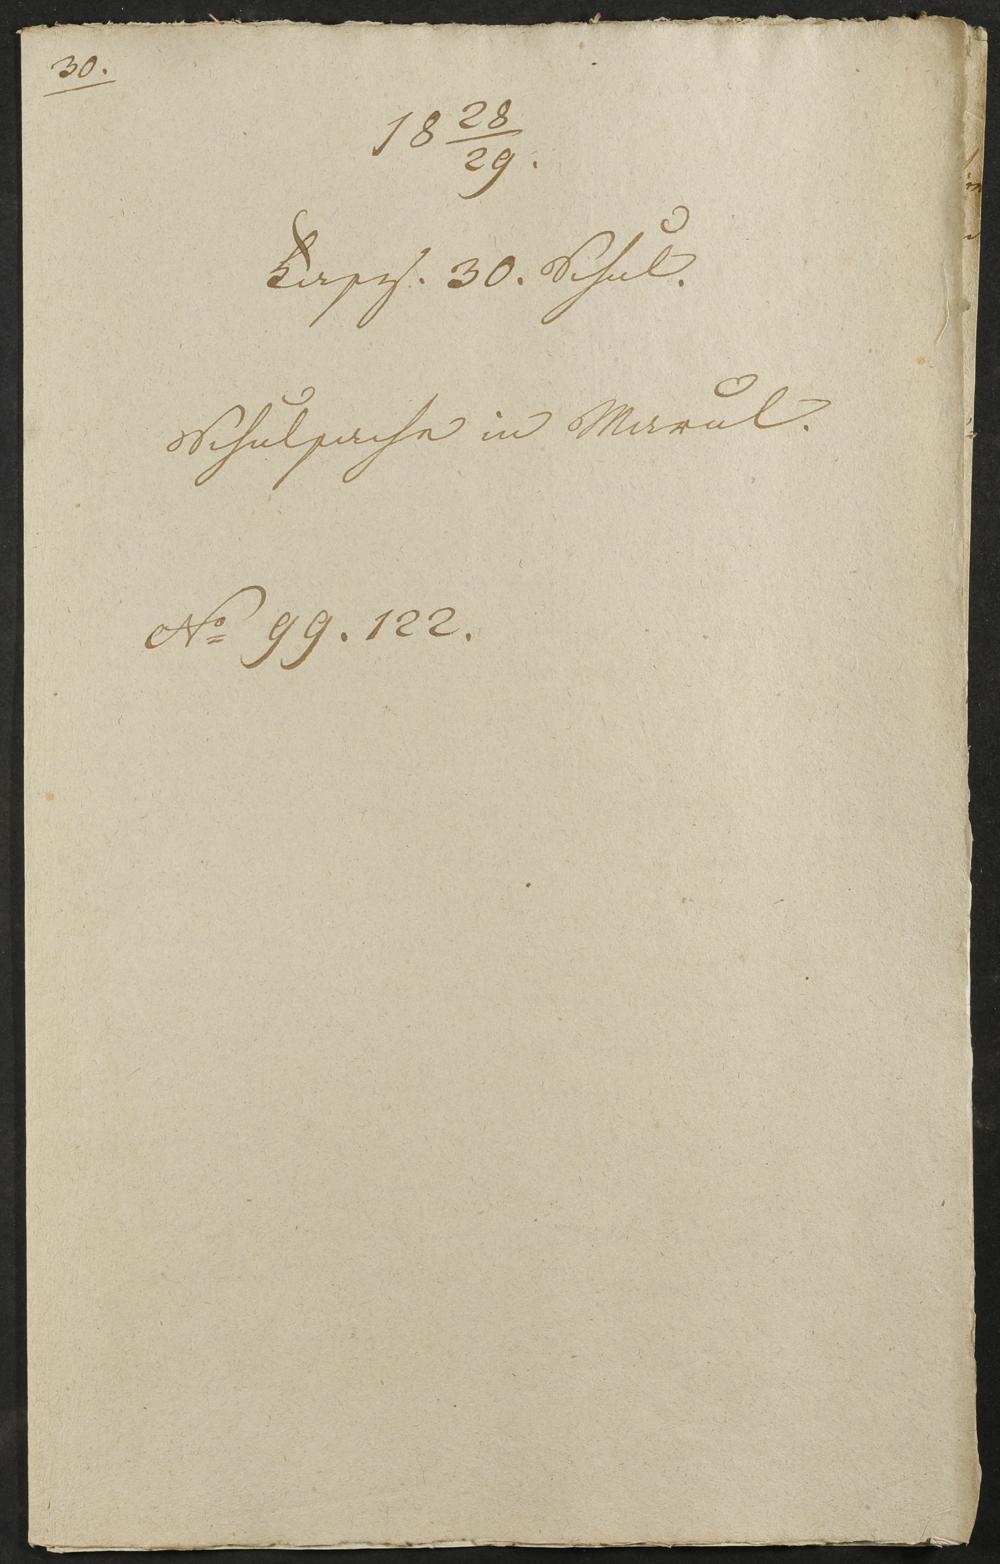 30.
18 28/29.
Fasz. 30. Schul.
Schulsache in Marul.
No 99. 122.